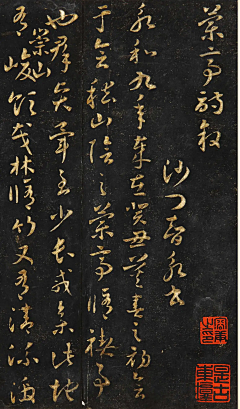 蘭亭詩叙
沙門智永書
永和九年歲在癸丑暮春之初會
于會稽山陰之蘭亭脩禊事
也群賢畢至少長咸集此地
有崇山峻領茂林脩竹又有清流激